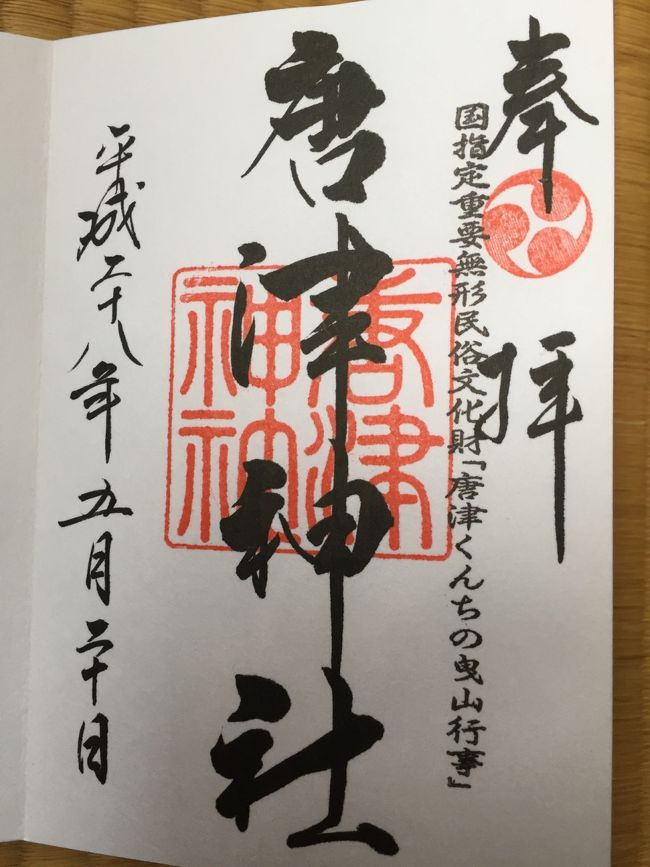 奉拝
国指定重要無形民俗文化財「唐津くんちの曳山行事」
唐津神社
唐津
神社
平成二十八年五月二十日